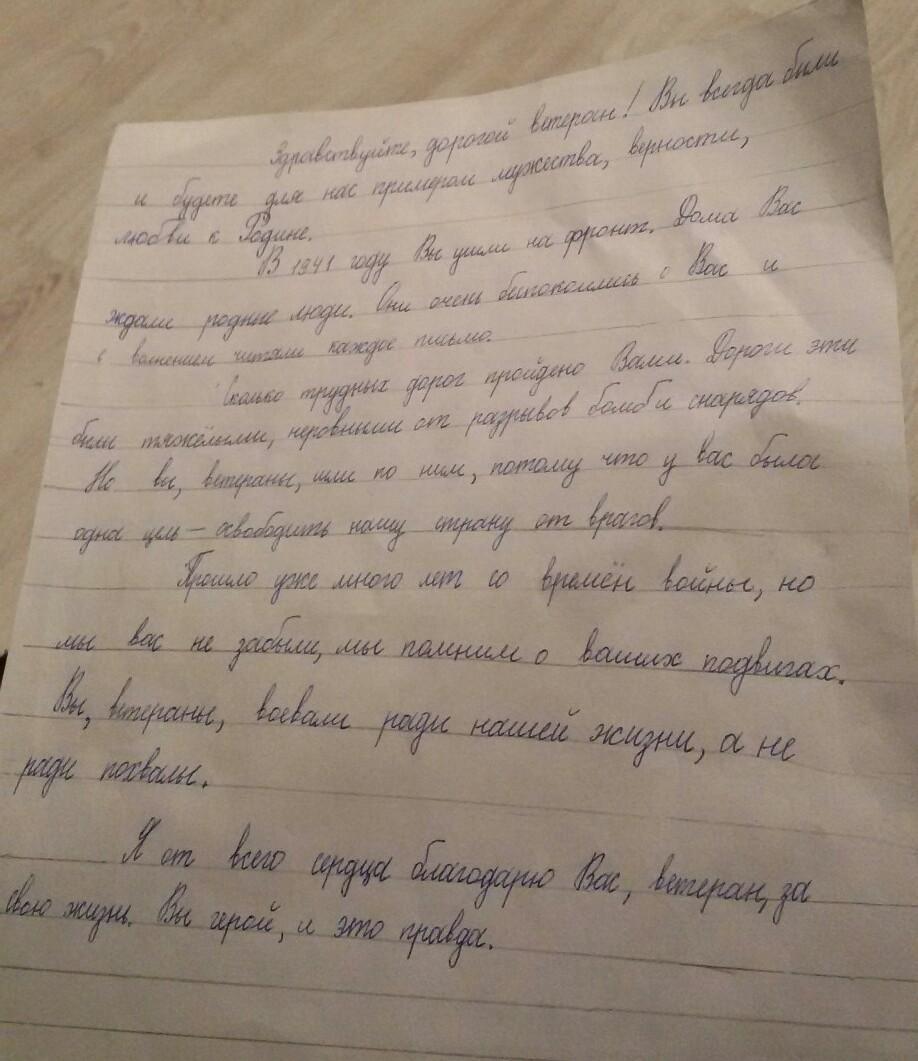 Здравствуйте, дорогой ветеран! Вы всегда были
и будете для нас примером мужества, верности,
любви к Родине.
В 1941 году Вы ушли на фронт. Дома Вас
ждали родные люди. Они очень беспокоились о Вас и
с волнением читали каждое письмо.
Сколько трудных дорог пройдено Вами. Дороги эти
были тяжёлыми, неровными от разрывов бомб и снарядов.
Но вы, ветераны, шли по ним, потому что у вас была
одна цель – освободить нашу страну от врагов.
Прошло уже много лет со времён войны, но
мы вас не забыли, мы помним о ваших подвигах.
Вы, ветераны, воевали ради нашей жизни, а не
ради похвалы.
Я от всего сердца благодарю Вас, ветеран, за
свою жизнь. Вы герой, и это правда.